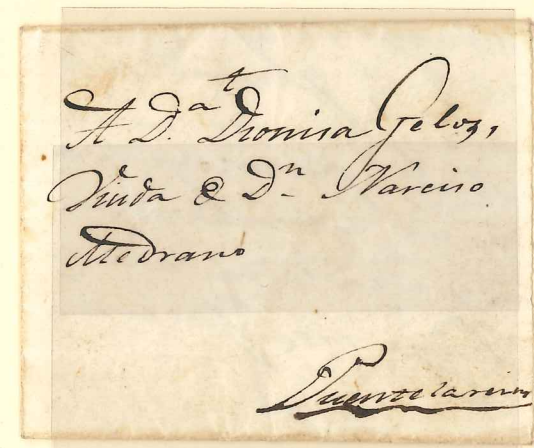 A D.ª Dionisa Geloz,
Viuda de Dn Narciso
Medrano
Puentelarreina